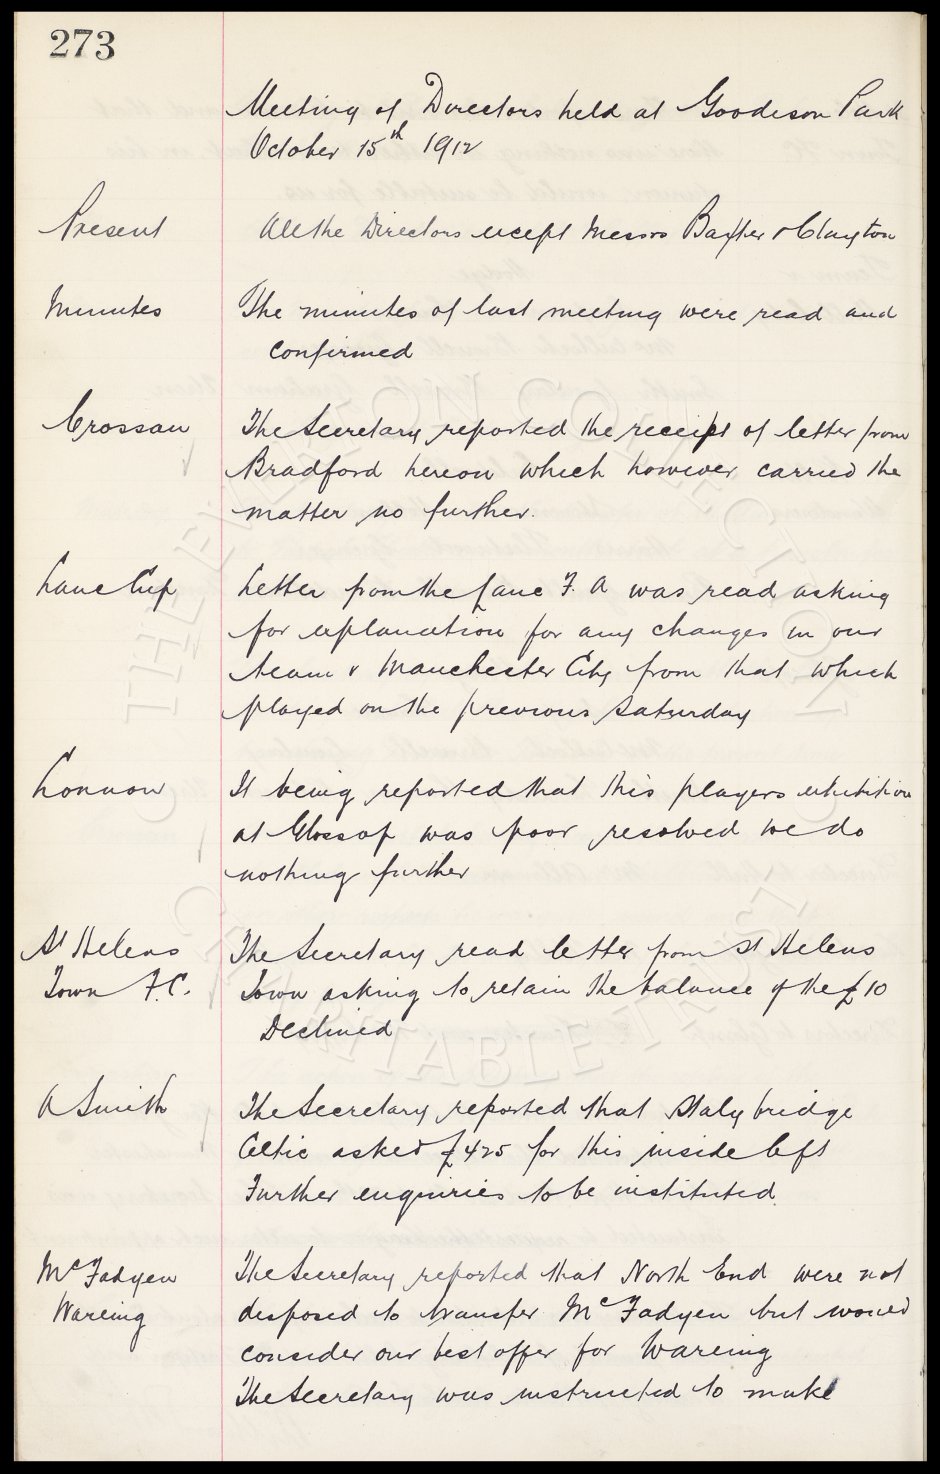 273
Meeting of Directors held at Goodison Park
October 15th 1912
Present All the Directors except Messrs Baxter & Clayton
Minutes The minutes of last meeting were read and
confirmed
Crossan The Secretary reported the receipt of letter from
Bradford hereon which however carried the
matter no further.
Lanc Cup Letter from the Lanc F. A was read asking
for explanation for any changes in our
team v Manchester City from that which
played on the previous Saturday
Lonnon It being reported that this players exhibition
at Glossop was poor resolved we do
nothing further
St Helens The Secretary read letter from St Helens
Town F.C. Town asking to retain the balance of the £10
Declined
A Smith The Secretary reported that Stalybridge
Celtic asked £425 for this inside left
Further enquiries to be instituted.
McFadyen The Secretary reported that North End were not
Wareing disposed to transfer McFadyen but would
consider our best offer for Wareing
The Secretary was instructed to make